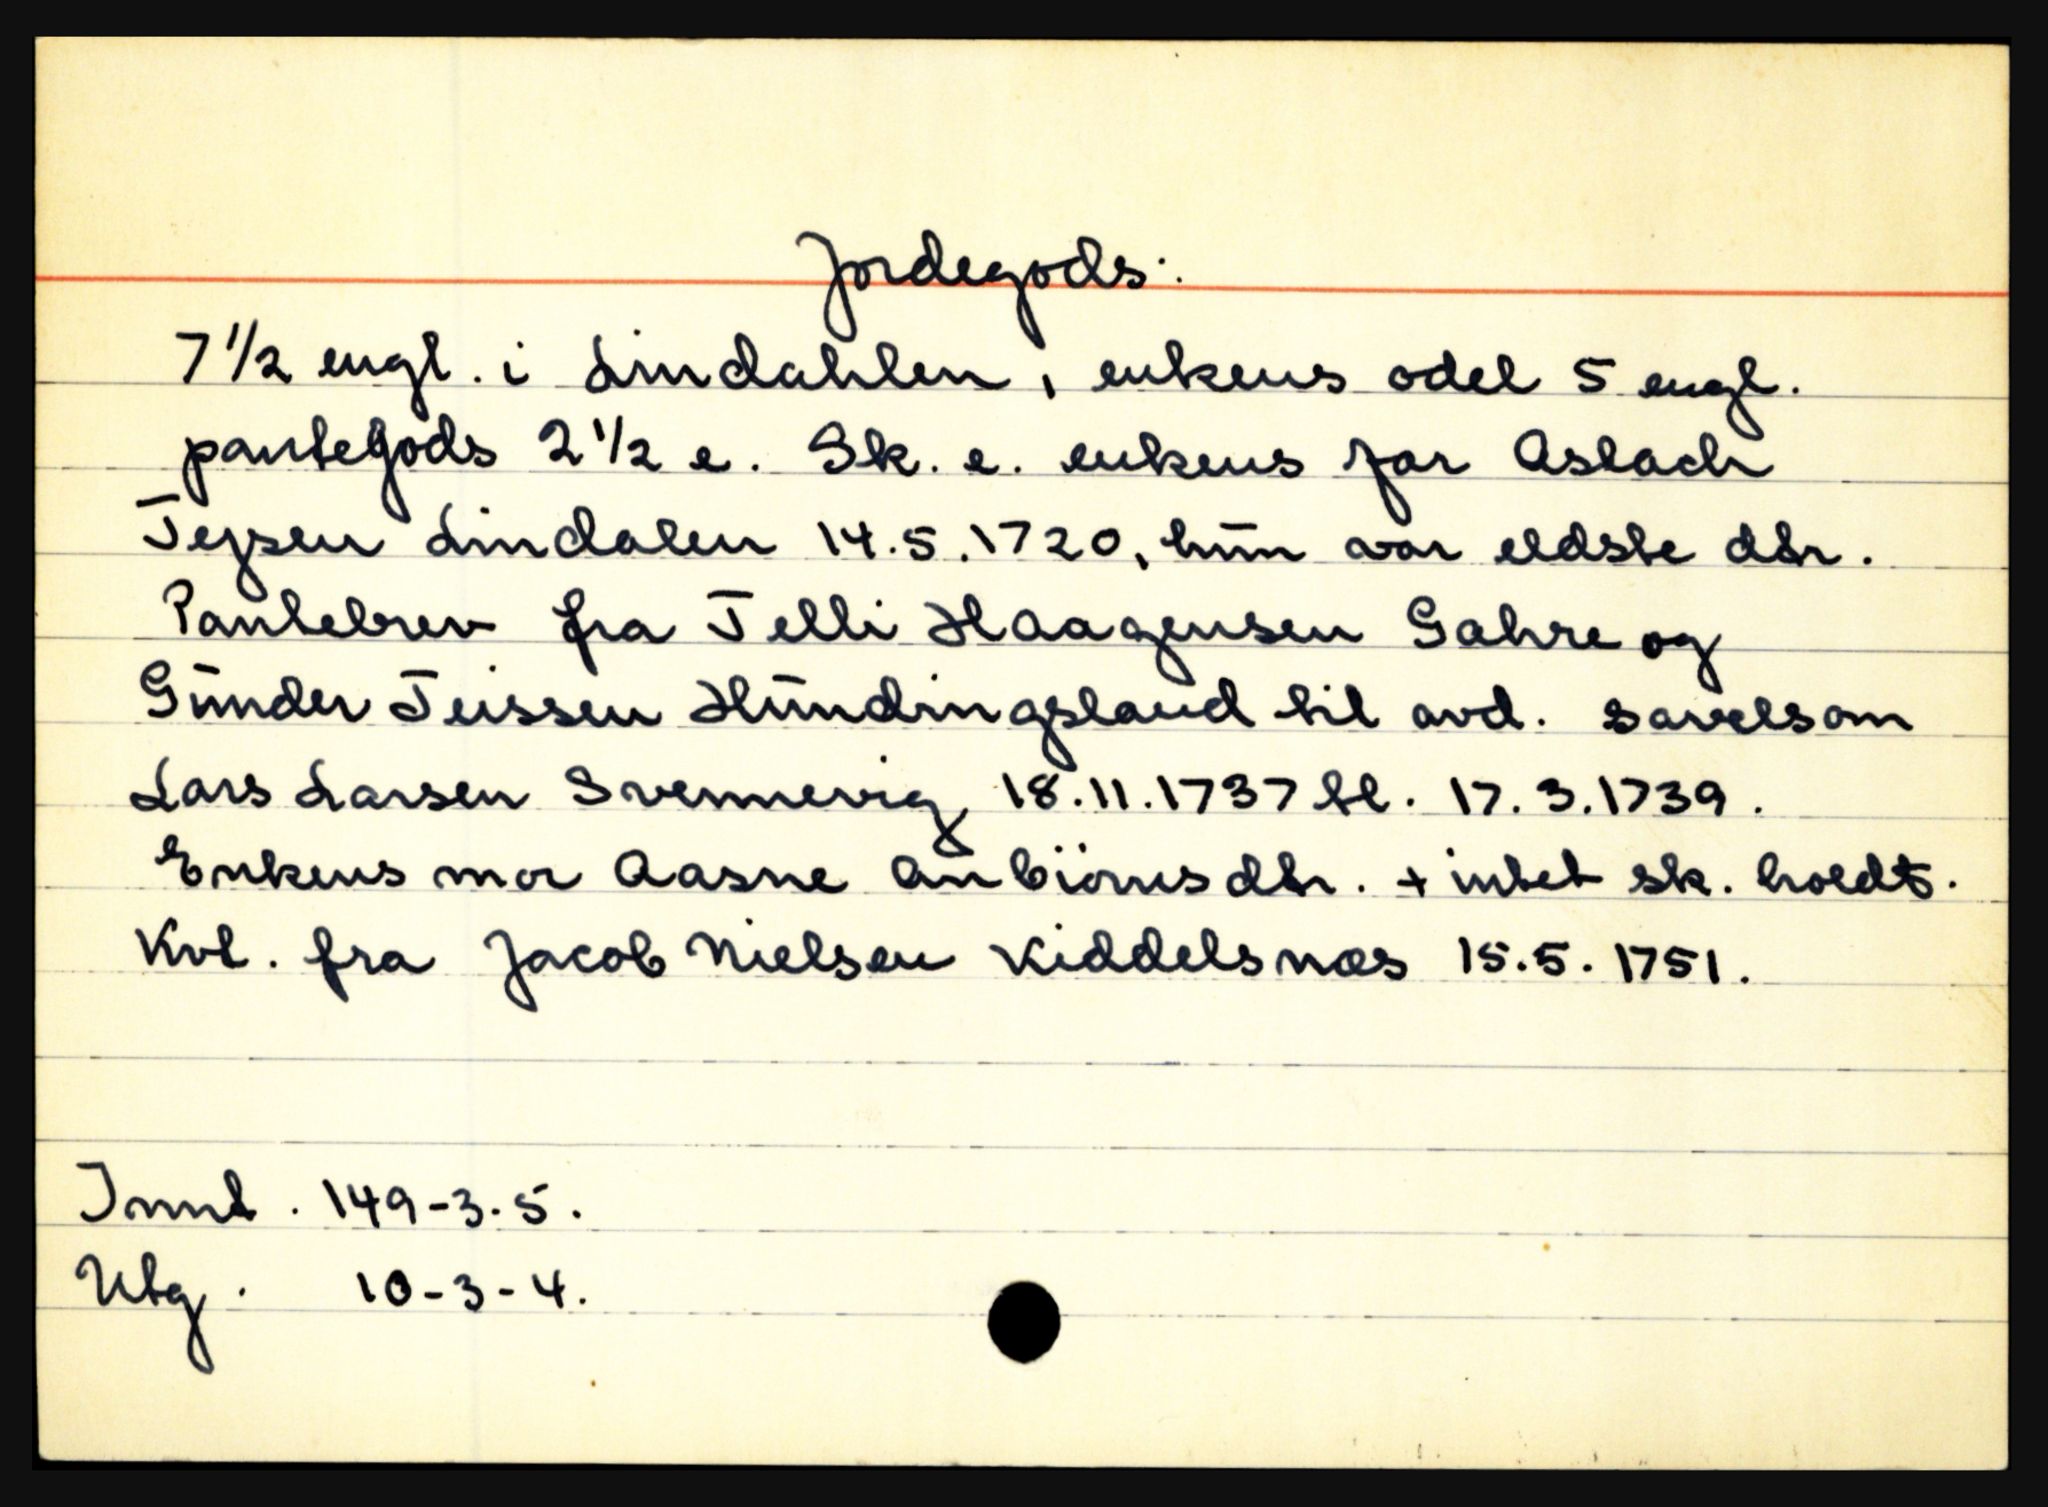 Jordegods:
7 1/2 engl. i Lindahlen, enkens odel 5 engl.
pantegods 2 1/2 e. Sk. e. enkens far Aslach
Tejsen Lindalen 14.5.1720, hūn var eldste dtr.
Pantebrev fra Telli Haagensen Gahre og
Gūnder Teissen Hūndingsland til avd. savelsom
Lars Larsen Svennevig 18.11.1737 tl. 17.3.1739.
Enkens mor Aasne Aūnbiörnsdtr. + intet sk. holdt.
Kvt. fra Jacob Nielsen Kiddelsnæs 15.5.1751.
Innt. 149-3-5.
Utg. 10-3-4.